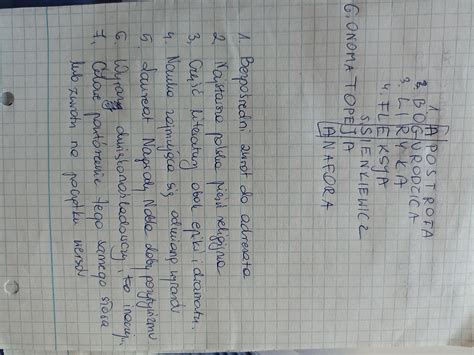 1 APOSTROFA
2. BOGURODZICA
3. LIRYKA
4. FLEKSJA
5 SIENKIEWICZ
6 ONOMATOPEJA
ANAFORA
1. Bezpośredni zwrot do adresata
2. Najstarsza polska pieśń religijna
3. Część literatury obok epiki i dramatu.
4. Nauka zajmująca się odmianą wyrazów
5. Laureat Nagrody Nobla doby pozytywizmu
6. Wyraz dźwiękonaśladowczy, to inaczej
7. Celowe powtórzenie tego samego słowa
lub zwrotu na początku wersów